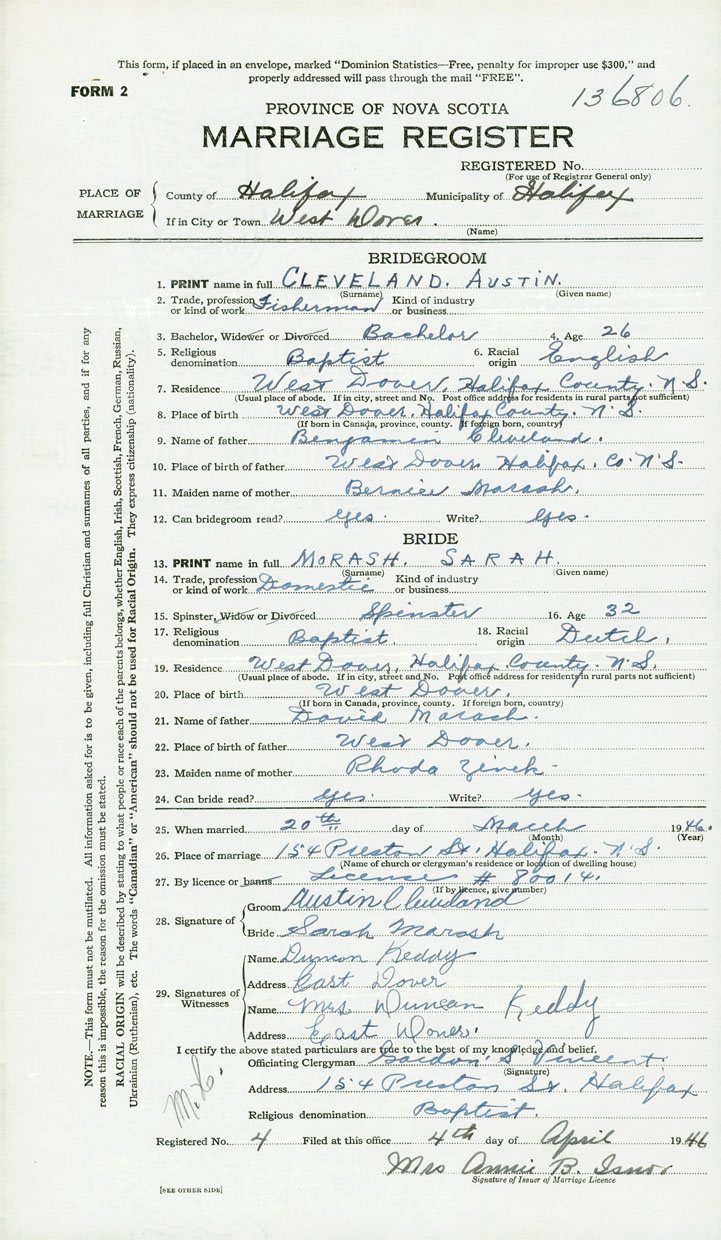 This form, if placed in an envelope, marked "Dominion Statistics—Free, penalty for improper use $300," and
properly addressed will pass through the mail "FREE".
FORM 2
136806.
PROVINCE OF NOVA SCOTIA
MARRIAGE REGISTER
REGISTERED No.
(For use of Registrar General only)
PLACE OF MARRIAGE
County of Halifax Municipality of Halifax
If in City or Town West Dover.
(Name)
BRIDEGROOM
1. PRINT name in full CLEVELAND. AUSTIN.
(Surname) (Given name)
2. Trade, profession or kind of work Fisherman Kind of industry or business
3. Bachelor, Widower or Divorced Bachelor 4. Age 26
5. Religious denomination Baptist 6. Racial origin English
7. Residence West Dover, Halifax County. N.S.
(Usual place of abode. If in city, street and No. Post office address for residents in rural parts not sufficient)
8. Place of birth West Dover. Halifax County. N.S.
(If born in Canada, province, county. If foreign born, country)
9. Name of father Benjamin Cleveland.
10. Place of birth of father West Dover Halifax. Co. N.S.
11. Maiden name of mother Bernice Marash.
12. Can bridegroom read? yes. Write? yes.
BRIDE
13. PRINT name in full MORASH. SARAH.
(Surname) (Given name)
14. Trade, profession or kind of work Domestic Kind of industry or business
15. Spinster, Widow or Divorced Spinster 16. Age 32
17. Religious denomination Baptist. 18. Racial origin Dutch,
19. Residence West Dover, Halifax County. N.S.
(Usual place of abode. If in city, street and No. Post office address for residents in rural parts not sufficient)
20. Place of birth West Dover.
(If born in Canada, province, county. If foreign born, country)
21. Name of father David Marash.
22. Place of birth of father West Dover.
23. Maiden name of mother Rhoda Zinck.
24. Can bride read? yes. Write? yes.
25. When married 20th day of March 1946.
(Month) (Year)
26. Place of marriage 154 Preston St. Halifax. N.S.
(Name of church or clergyman's residence or location of dwelling house)
27. By licence or banns License # 80014.
(If by licence, give number)
28. Signature of Groom Austin Cleveland
Bride Sarah Marash
29. Signatures of Witnesses
Name Duncan Keddy
Address East Dover
Name Mrs Duncan Keddy
Address East Dover.
I certify the above stated particulars are true to the best of my knowledge and belief.
Officiating Clergyman Gordon S Vincent.
(Signature)
Address 154 Preston St. Halifax
Religious denomination Baptist.
Registered No. 4 Filed at this office 4th day of April 1946
Mrs Annie B. Isnor
Signature of Issuer of Marriage Licence
[SEE OTHER SIDE]
NOTE.—This form must not be mutilated. All information asked for is to be given, including full Christian and surnames of all parties, and if for any
reason this is impossible, the reason for the omission must be stated.
RACIAL ORIGIN will be described by stating to what people or race each of the parents belongs, whether English, Irish, Scottish, French, German, Russian,
Ukrainian (Ruthenian), etc. The words "Canadian" or "American" should not be used for Racial Origin. They express citizenship (nationality).